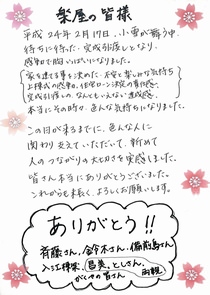 楽屋の皆様
平成24年2月17日、小雪が舞う中
待ちに待った、完成引渡しとなり、
感動で胸いっぱいになりました。
家を建てる事を決めた、不安と楽しみな気持ち
上棟式の感動、住宅ローン決定の責任感、
完成引渡しの なんともいえない達成感、
本当にその時々、色んな気持ちになりました。
この日が来るまでに、色んな人に
関わり支えていただいて、改めて
人のつながりの大切さを実感しました。
皆さん本当にありがとうございました。
これからも末長く、よろしくお願いします。
ありがとう!!
斉藤さん、鈴木さん、備前島さん
入江棟梁、
としさん、
がくやの皆さん
両親